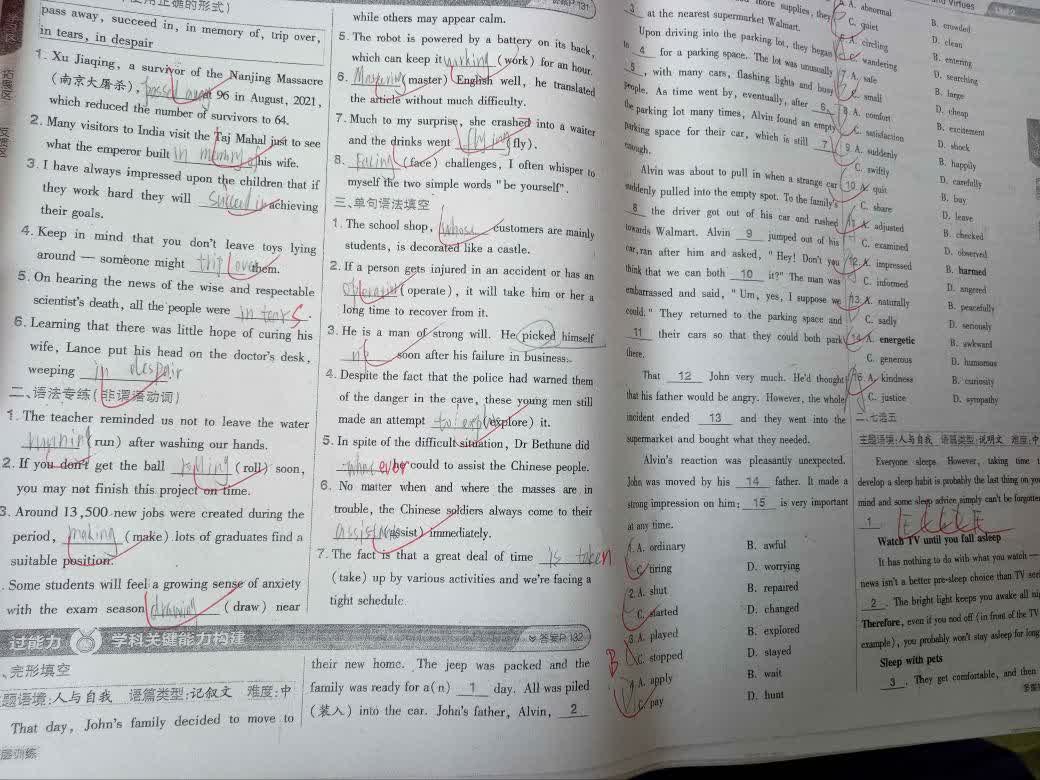 使用正确的形式)
pass away, succeed in, in memory of, trip over,
in tears, in despair
1. Xu Jiaqing, a survivor of the Nanjing Massacre
(南京大屠杀), passed away at 96 in August, 2021,
which reduced the number of survivors to 64.
2. Many visitors to India visit the Taj Mahal just to see
what the emperor built in memory of his wife.
3. I have always impressed upon the children that if
they work hard they will succeed in achieving
their goals.
4. Keep in mind that you don't leave toys lying
around — someone might trip over them.
5. On hearing the news of the wise and respectable
scientist's death, all the people were in tears.
6. Learning that there was little hope of curing his
wife, Lance put his head on the doctor's desk,
weeping in despair
二、语法专练(非谓语动词)
1. The teacher reminded us not to leave the water
running (run) after washing our hands.
2. If you don't get the ball rolling (roll) soon,
you may not finish this project on time.
3. Around 13,500 new jobs were created during the
period, making (make) lots of graduates find a
suitable position.
. Some students will feel a growing sense of anxiety
with the exam season drawing (draw) near
过能力 学科关键能力构建 答案P.132
、完形填空
题语境:人与自我 语篇类型:记叙文 难度:中
That day, John's family decided to move to
层训练
答案P.131
while others may appear calm.
5. The robot is powered by a battery on its back,
which can keep it working (work) for an hour.
6. Mastering (master) English well, he translated
the article without much difficulty.
7. Much to my surprise, she crashed into a waiter
and the drinks went flying (fly).
8. Facing (face) challenges, I often whisper to
myself the two simple words "be yourself".
三、单句语法填空
1. The school shop, whose customers are mainly
students, is decorated like a castle.
2. If a person gets injured in an accident or has an
operation (operate), it will take him or her a
long time to recover from it.
3. He is a man of strong will. He picked himself
up soon after his failure in business.
4. Despite the fact that the police had warned them
of the danger in the cave, these young men still
made an attempt to explore (explore) it.
5. In spite of the difficult situation, Dr Bethune did
whatever he could to assist the Chinese people.
6. No matter when and where the masses are in
trouble, the Chinese soldiers always come to their
assistance (assist) immediately.
7. The fact is that a great deal of time is taken
(take) up by various activities and we're facing a
tight schedule.
their new home. The jeep was packed and the
family was ready for a(n) 1 day. All was piled
(装入) into the car. John's father, Alvin, 2
more supplies, they
3 at the nearest supermarket Walmart.
Upon driving into the parking lot, they began
to 4 for a parking space. The lot was unusually
5, with many cars, flashing lights and busy
people. As time went by, eventually, after 6
the parking lot many times, Alvin found an empty
parking space for their car, which is still 7
enough.
Alvin was about to pull in when a strange car
suddenly pulled into the empty spot. To the family's
8 the driver got out of his car and rushed
towards Walmart. Alvin 9 jumped out of his
car, ran after him and asked, "Hey! Don't you
think that we can both 10 it?" The man was
embarrassed and said, "Um, yes, I suppose we
could." They returned to the parking space and
11 their cars so that they could both park
there.
That 12 John very much. He'd thought
that his father would be angry. However, the whole
incident ended 13 and they went into the
supermarket and bought what they needed.
Alvin's reaction was pleasantly unexpected.
John was moved by his 14 father. It made a
strong impression on him; 15 is very important
at any time.
1. A. ordinary B. awful
C. tiring D. worrying
2. A. shut B. repaired
C. started D. changed
3. A. played B. explored
B C. stopped D. stayed
4. A. apply B. wait
C. pay D. hunt
and Virtues Unit 2
A. abnormal B. crowded
C. quiet D. clean
A. circling B. entering
C. wandering D. searching
7 A. safe B. large
C. small D. cheap
8 A. comfort B. excitement
C. satisfaction D. shock
9 A. suddenly B. happily
C. swiftly D. carefully
10 A. quit B. buy
C. share D. leave
A. adjusted B. checked
C. examined D. observed
12 A. impressed B. harmed
C. informed D. angered
13 A. naturally B. peacefully
C. sadly D. seriously
14 A. energetic B. awkward
C. generous D. humorous
15 A. kindness B. curiosity
C. justice D. sympathy
二、七选五
主题语境:人与自我 语篇类型:说明文 难度:中
Everyone sleeps. However, taking time t
develop a sleep habit is probably the last thing on you
mind and some sleep advice simply can't be forgotten
1
Watch TV until you fall asleep
It has nothing to do with what you watch —
news isn't a better pre-sleep choice than TV seri
2. The bright light keeps you awake all nig
Therefore, even if you nod off (in front of the TV
example), you probably won't stay asleep for long
Sleep with pets
3. They get comfortable, and then